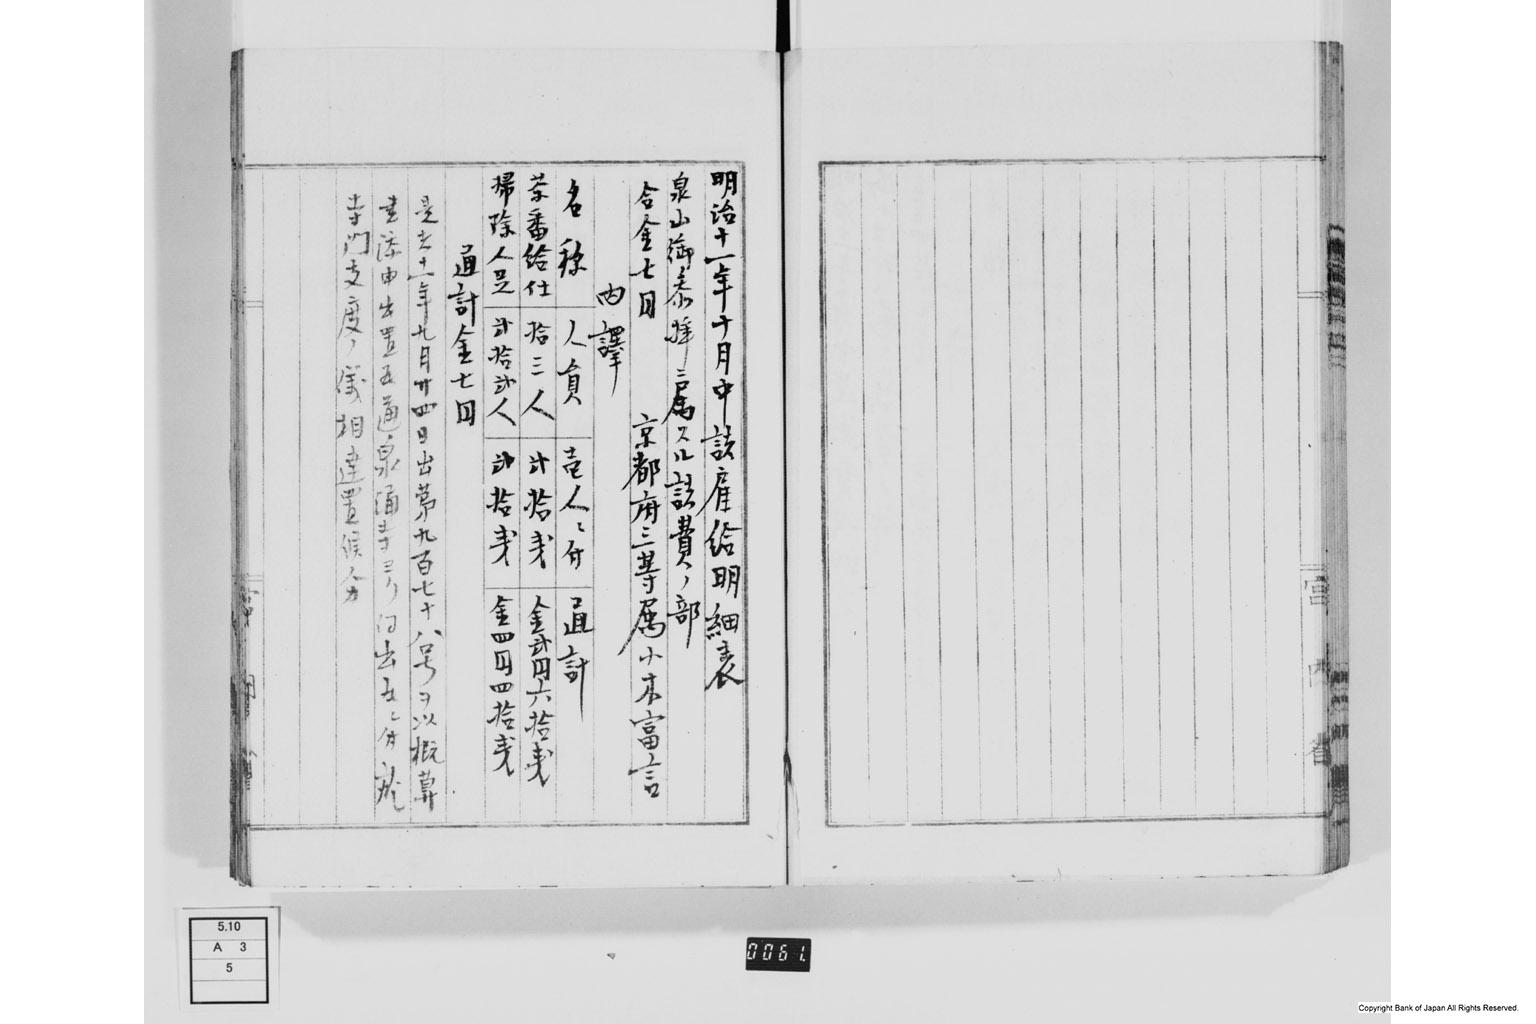 明治十一年十月中諸雇給明細表
泉山御参拝ニ属スル諸費ノ部
合金七円 京都府三等属小木富言
内譯
名称 人員 壱人ニ付 通計
茶番給仕 拾三人 弐拾銭 金弐円六拾銭
掃除人足 弐拾弐人 弐拾銭 金四円四拾銭
通計金七円
是者十一年九月廿四日出第九百七十八号ヲ以概算
書添申出置 泉涌寺ヨリ
寺門支度ノ儀相達置候分
宮内省
宮内省
5.10
A 3
5
0061.
Copyright Bank of Japan All Rights Reserved.